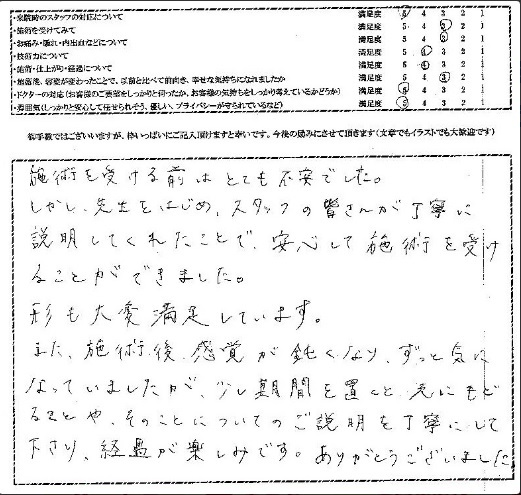 ・来院時のスタッフの対応について 満足度 5 4 3 2 1
・施術を受けてみて 満足度 5 4 3 2 1
・お痛み・腫れ・内出血などについて 満足度 5 4 3 2 1
・技術力について 満足度 5 4 3 2 1
・施術・仕上がり・経過について 満足度 5 4 3 2 1
・施術後、容姿が変わったことで、以前と比べて前向き、幸せな気持ちになれましたか 満足度 5 4 3 2 1
・ドクターの対応(お客様のご要望をしっかりと伺ったか、お客様の気持ちをしっかり考えているかどうか) 満足度 5 4 3 2 1
・雰囲気(しっかりと安心して任せられそう、優しい、プライバシーが守られているなど) 満足度 5 4 3 2 1
御手数ではございいますが、枠いっぱいにご記入頂けますと幸いです。今後の励みにさせて頂きます(文章でもイラストでも大歓迎です)
施術を受ける前はとても不安でした。
しかし、先生をはじめ、スタッフの皆さんが丁寧に
説明してくれたことで、安心して施術を受け
ることができました。
形も大変満足しています。
また、施術後、感覚が鈍くなり、ずっと気に
なっていましたが、少し期間を置くと元にもど
ることや、そのことについてのご説明を丁寧にして
下さり、経過が楽しみです。ありがとうございました